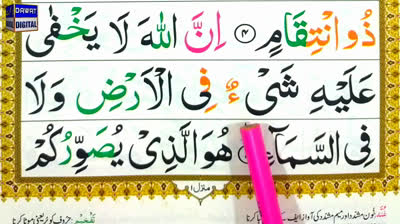 DAWAT
DIGITAL
ذُو انْتِقَامٍ ﴿۴﴾ اِنَّ اللّٰهَ لَا يَخْفٰى
عَلَيْهِ شَیْءٌ فِى الْاَرْضِ وَلَا
فِى السَّمَآءِ هُوَ الَّذِىْ يُصَوِّرُكُمْ
منزل ۱